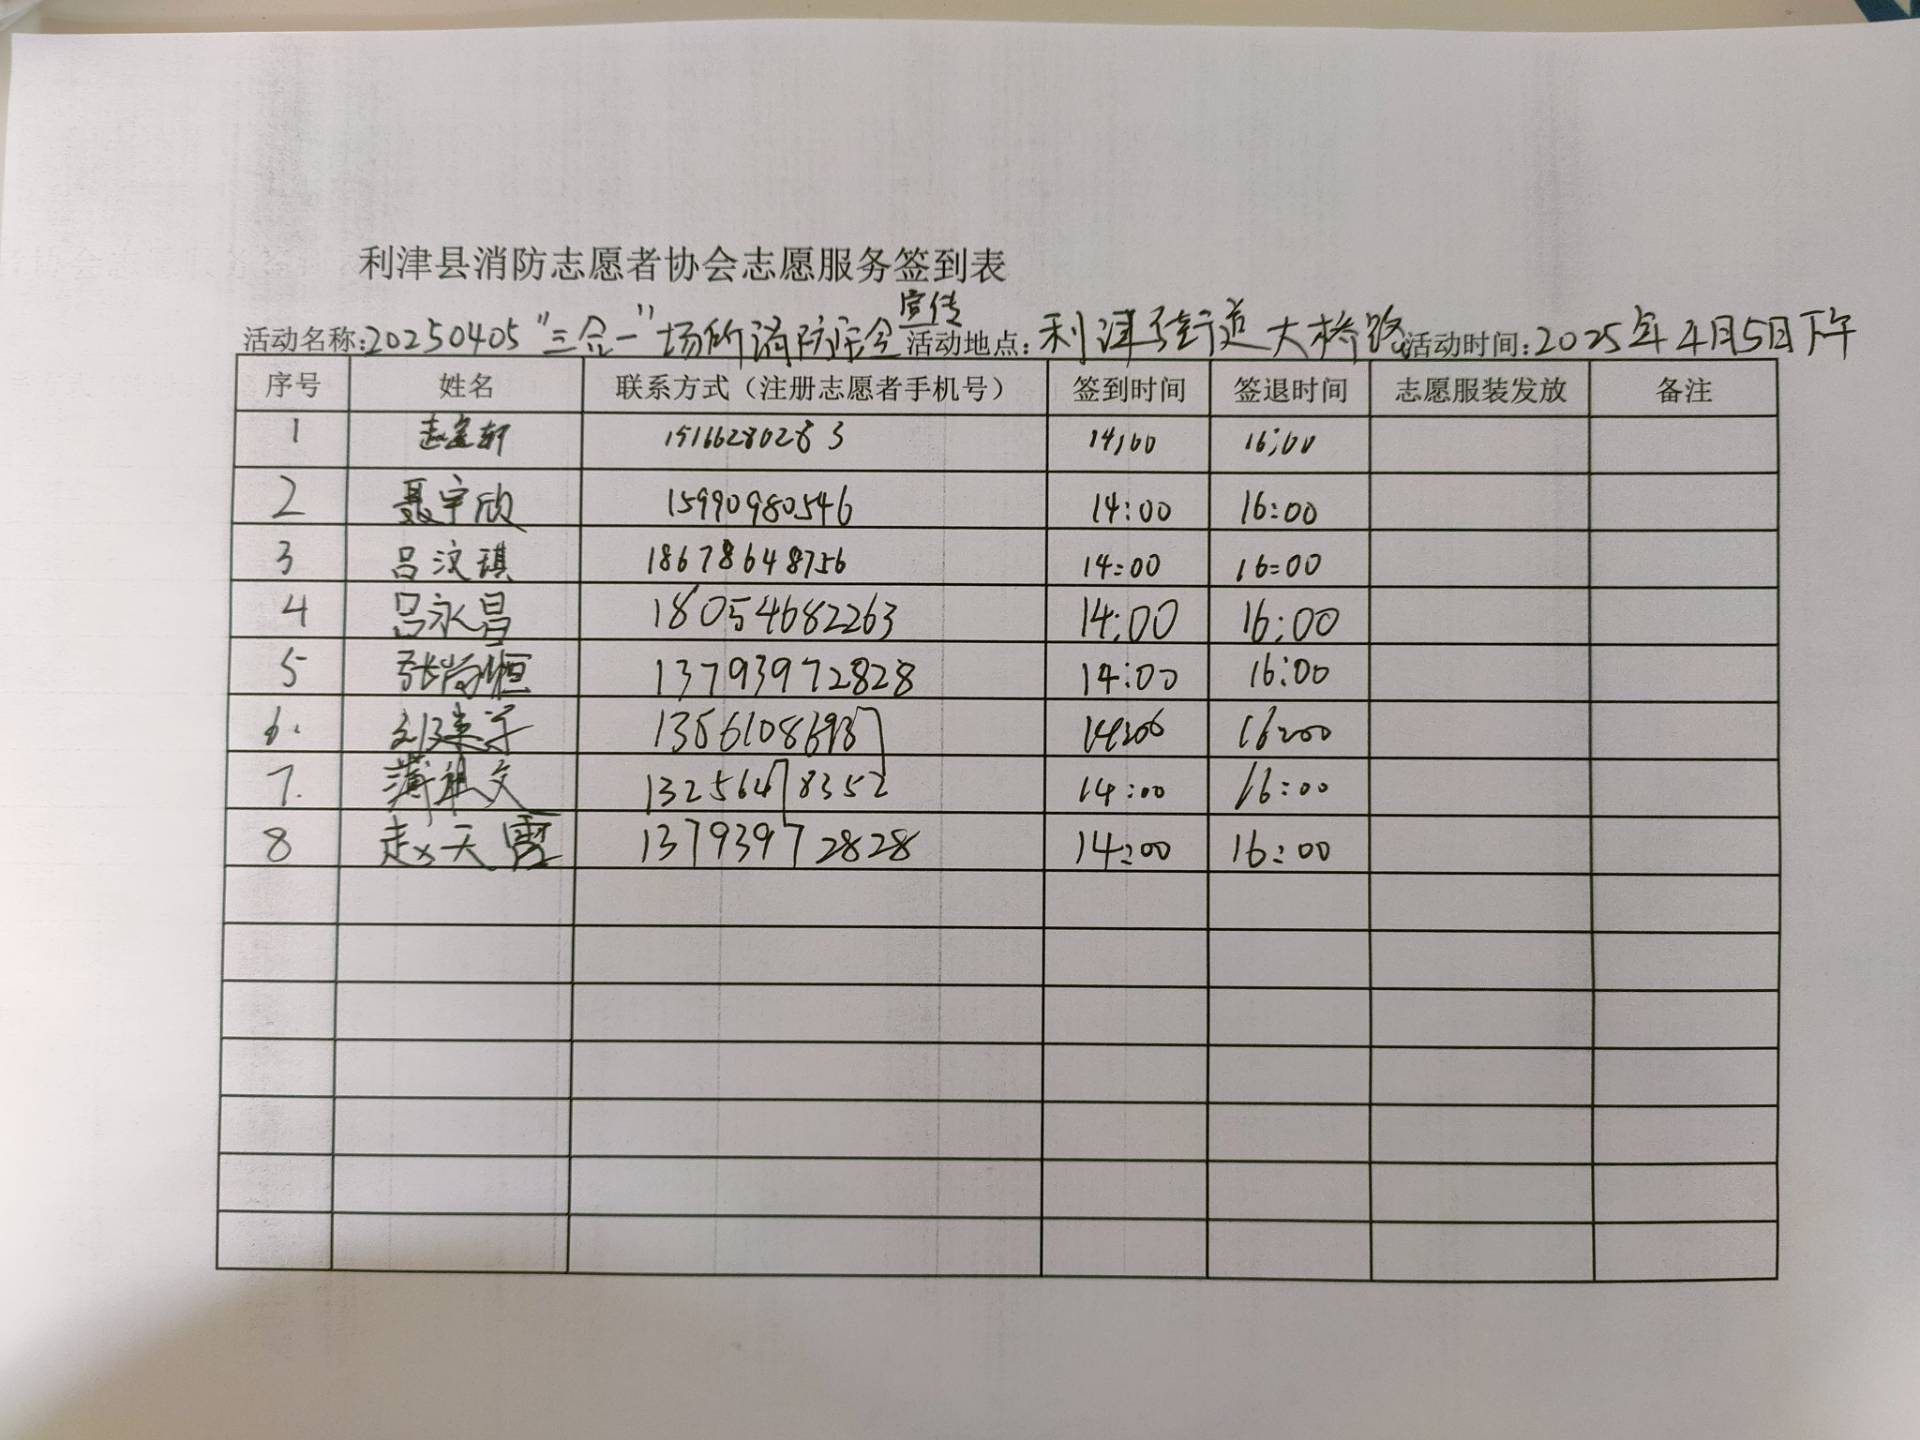 利津县消防志愿者协会志愿服务签到表
宣传
活动名称:20250405"三合一"场所消防安全 活动地点:利津街道大桥路 活动时间:2025年4月5日下午
序号 姓名 联系方式（注册志愿者手机号） 签到时间 签退时间 志愿服装发放 备注
1 15166280283 14:00 16:00
2 聂宇欣 15990980546 14:00 16:00
3 吕汶琪 18678648756 14:00 16:00
4 吕永昌 18054682263 14:00 16:00
5 张尚恒 13793972828 14:00 16:00
6. 14:00 16:00
7. 薄祖文 13256478352 14:00 16:00
8 赵天霞 13793972828 14:00 16:00